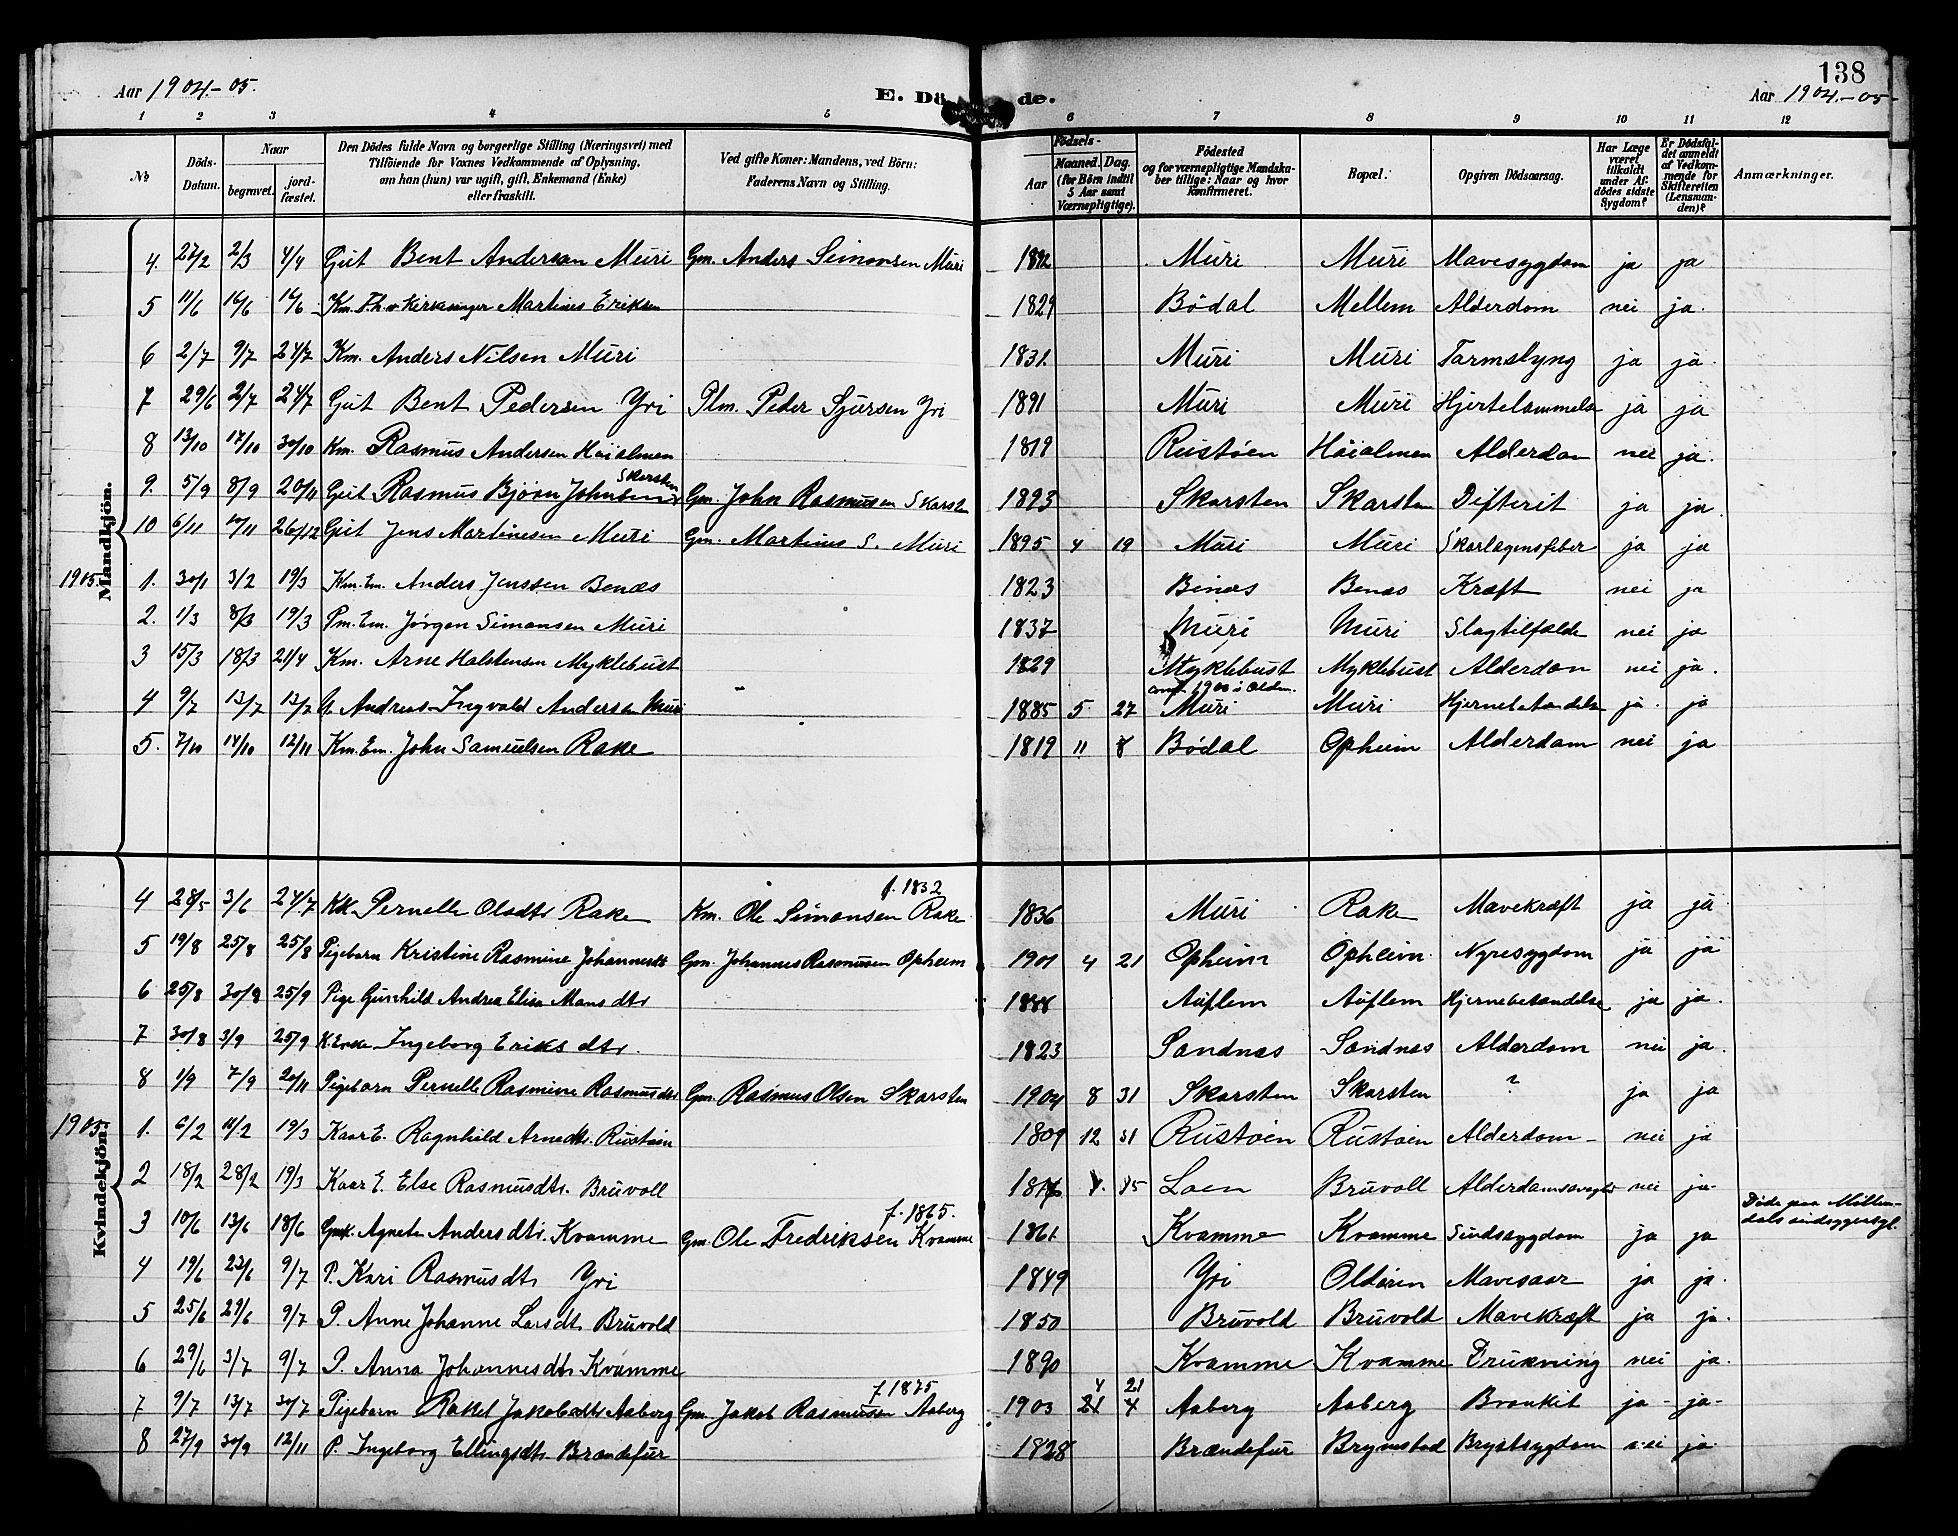 138
Aar 1904.-05.
E. Dö de.
Aar 1904.-05-
1 2 3 4 5 6 7 8 9 10 11 12
No.
Döds-Datum.
Naar
begravet.
jord-fæstet.
Den Dödes fulde Navn og borgerlige Stilling (Næringsvei) med
Tilföiende for Voxnes Vedkommende af Oplysning,
om han (hun) var ugift, gift, Enkemand (Enke)
eller fraskilt.
Ved gifte Koner: Mandens, ved Börn:
Faderens Navn og Stilling.
Födsels-
Aar
Maaned. Dag.
(for Börn indtil
5 Aar samt
Værnepligtige).
Födested
og for værnepligtige Mandska-
ber tillige: Naar og hvor
konfirmeret.
Bopæl.
Opgiven Dödsaarsag.
Har Læge
været
tilkaldt
under Af-
dödes sidste
Sygdom?
Er Dödsfal-
det anmeldt
af Vedkom-
mende for
Skifteretten
(Lensman-
den)?
Anmærkninger.
Mandkjön.
4. 27/2 2/3 4/4 Gut Bent Andersen Muri Gm. Anders Simonsen Muri 1892 Muri Muri Mavesygdom ja ja
5 11/6 16/6 16/6 Km. F.h.v. Kirkesanger Martines Eriksen 1829 Bödal Mellem Alderdom nei ja.
6 2/7 9/7 24/7 Km. Anders Nilsen Muri 1831. Muri Muri Tarmslyng ja ja.
7 29/6 2/7 24/7 Gut Bent Pedersen Yri Plm. Peder Sjursen Yri 1891 Muri Muri ja ja
8 13/10 17/10 30/10 Km. Rasmus Andersen Höialmen 1819 Rustöen Höialmen Alderdom nei ja.
9. 5/9 8/9 20/11 Gut Rasmus Bjørn Johnsen Skarsten Gm. John Rasmusen Skarsten 1893 Skarsten Skarsten Difterit ja ja.
10 6/11 10/11 26/12 Gut Jens Martinesen Muri Gm. Martinus S. Muri 1895 4 19 Muri Muri Skarlagensfeber ja ja
1905. 1. 30/1 3/2 19/3 Km. Em. Anders Jenssen Benæs 1823 Benæs Benæs Kræft nei ja
2. 1/3 8/3 19/3 Pm. Em. Jørgen Simonsen Muri 1837 Muri Muri Slagtilfælde nei ja
3 15/3 18/3 21/4 Km. Arne Halstensen Myklebust 1829 Myklebust Myklebust Alderdom nei ja.
conf. 1900 i Olden.
4 9/7 13/7 13/7 U. Andreas Ingvald Andersen Muri " 1885 5 27 Muri Muri ja. ja
5. 7/10 14/10 12/11 Km. Em. John Samuelsen Rake 1819 11 8 Bödal Opheim Alderdom nei ja
Kvindekjön.
f. 1832
4 28/5 3/6 24/7 Kk. Pernelle Olsdtr Rake Km. Ole Simonsen Rake 1836 Muri Rake Mavekræft ja ja
5 19/8 25/8 25/8 Pigebarn Kristine Rasmine Johannesdt Gm. Johannes Rasmusen Opheim 1901 4 21 Opheim Opheim Nyresygdom ja ja
6 25/8 30/8 25/9 Pige Gunhild Andrea Elisa Mons dtr 1888 Auflem Auflem Hjernebetændelse ja ja.
7 30/8 3/9 25/9 K. Enke Ingeborg Eriks dtr. 1823 Sandnæs Sandnæs Alderdom nei ja.
8 1/9 7/9 20/11 Pigebarn Pernelle Rasmine Rasmusdtr Gm. Rasmus Olsen Skarsten 1904 8 31 Skarsten Skarsten ? ja ja
1905. 1. 6/2 11/2 19/3 Kaar E. Ragnhild Arnedtr. Rustöen 1809 12 31 Rustöen Rustöen Alderdom nei ja
2 18/2 28/2 19/3 Kaar E. Else Rasmusdtr. Bruvoll Loen Bruvoll nei ja.
f. 1865.
Döde paa
3 10/6 13/6 18/6 Gmk. Agnete Andersdtr. Kvamme Gm. Ole Fredriksen Kvamme 1861. Kvamme Kvamme Sindssygdom ja ja
4 19/6 23/6 9/7 P. Kari Rasmusdtr Yri 1849 Yri Oldören Mavesaar ja ja.
5 25/6 29/6 9/7 P. Anne Johanne Larsdtr Bruvold 1850 Bruvold Bruvold Mavekræft ja ja.
6 29/6 3/7 9/7 P. Anna Johannesdtr Kvamme 1890 Kvamme Kvamme Drukning nei ja.
f. 1875 4 21
7 9/7 13/7 30/7 Pigebarn Rakel Jakobsdtr Aaberg Gm. Jakob Rasmusen Aaberg 1903 21 4 Aaberg Aaberg Bronkit ja - ja-
8 27/9 30/9 12/11 P. Ingeborg Ellingsdtr. Brændefur 1828 Brændefur Brynestad Brystsygdom nei ja